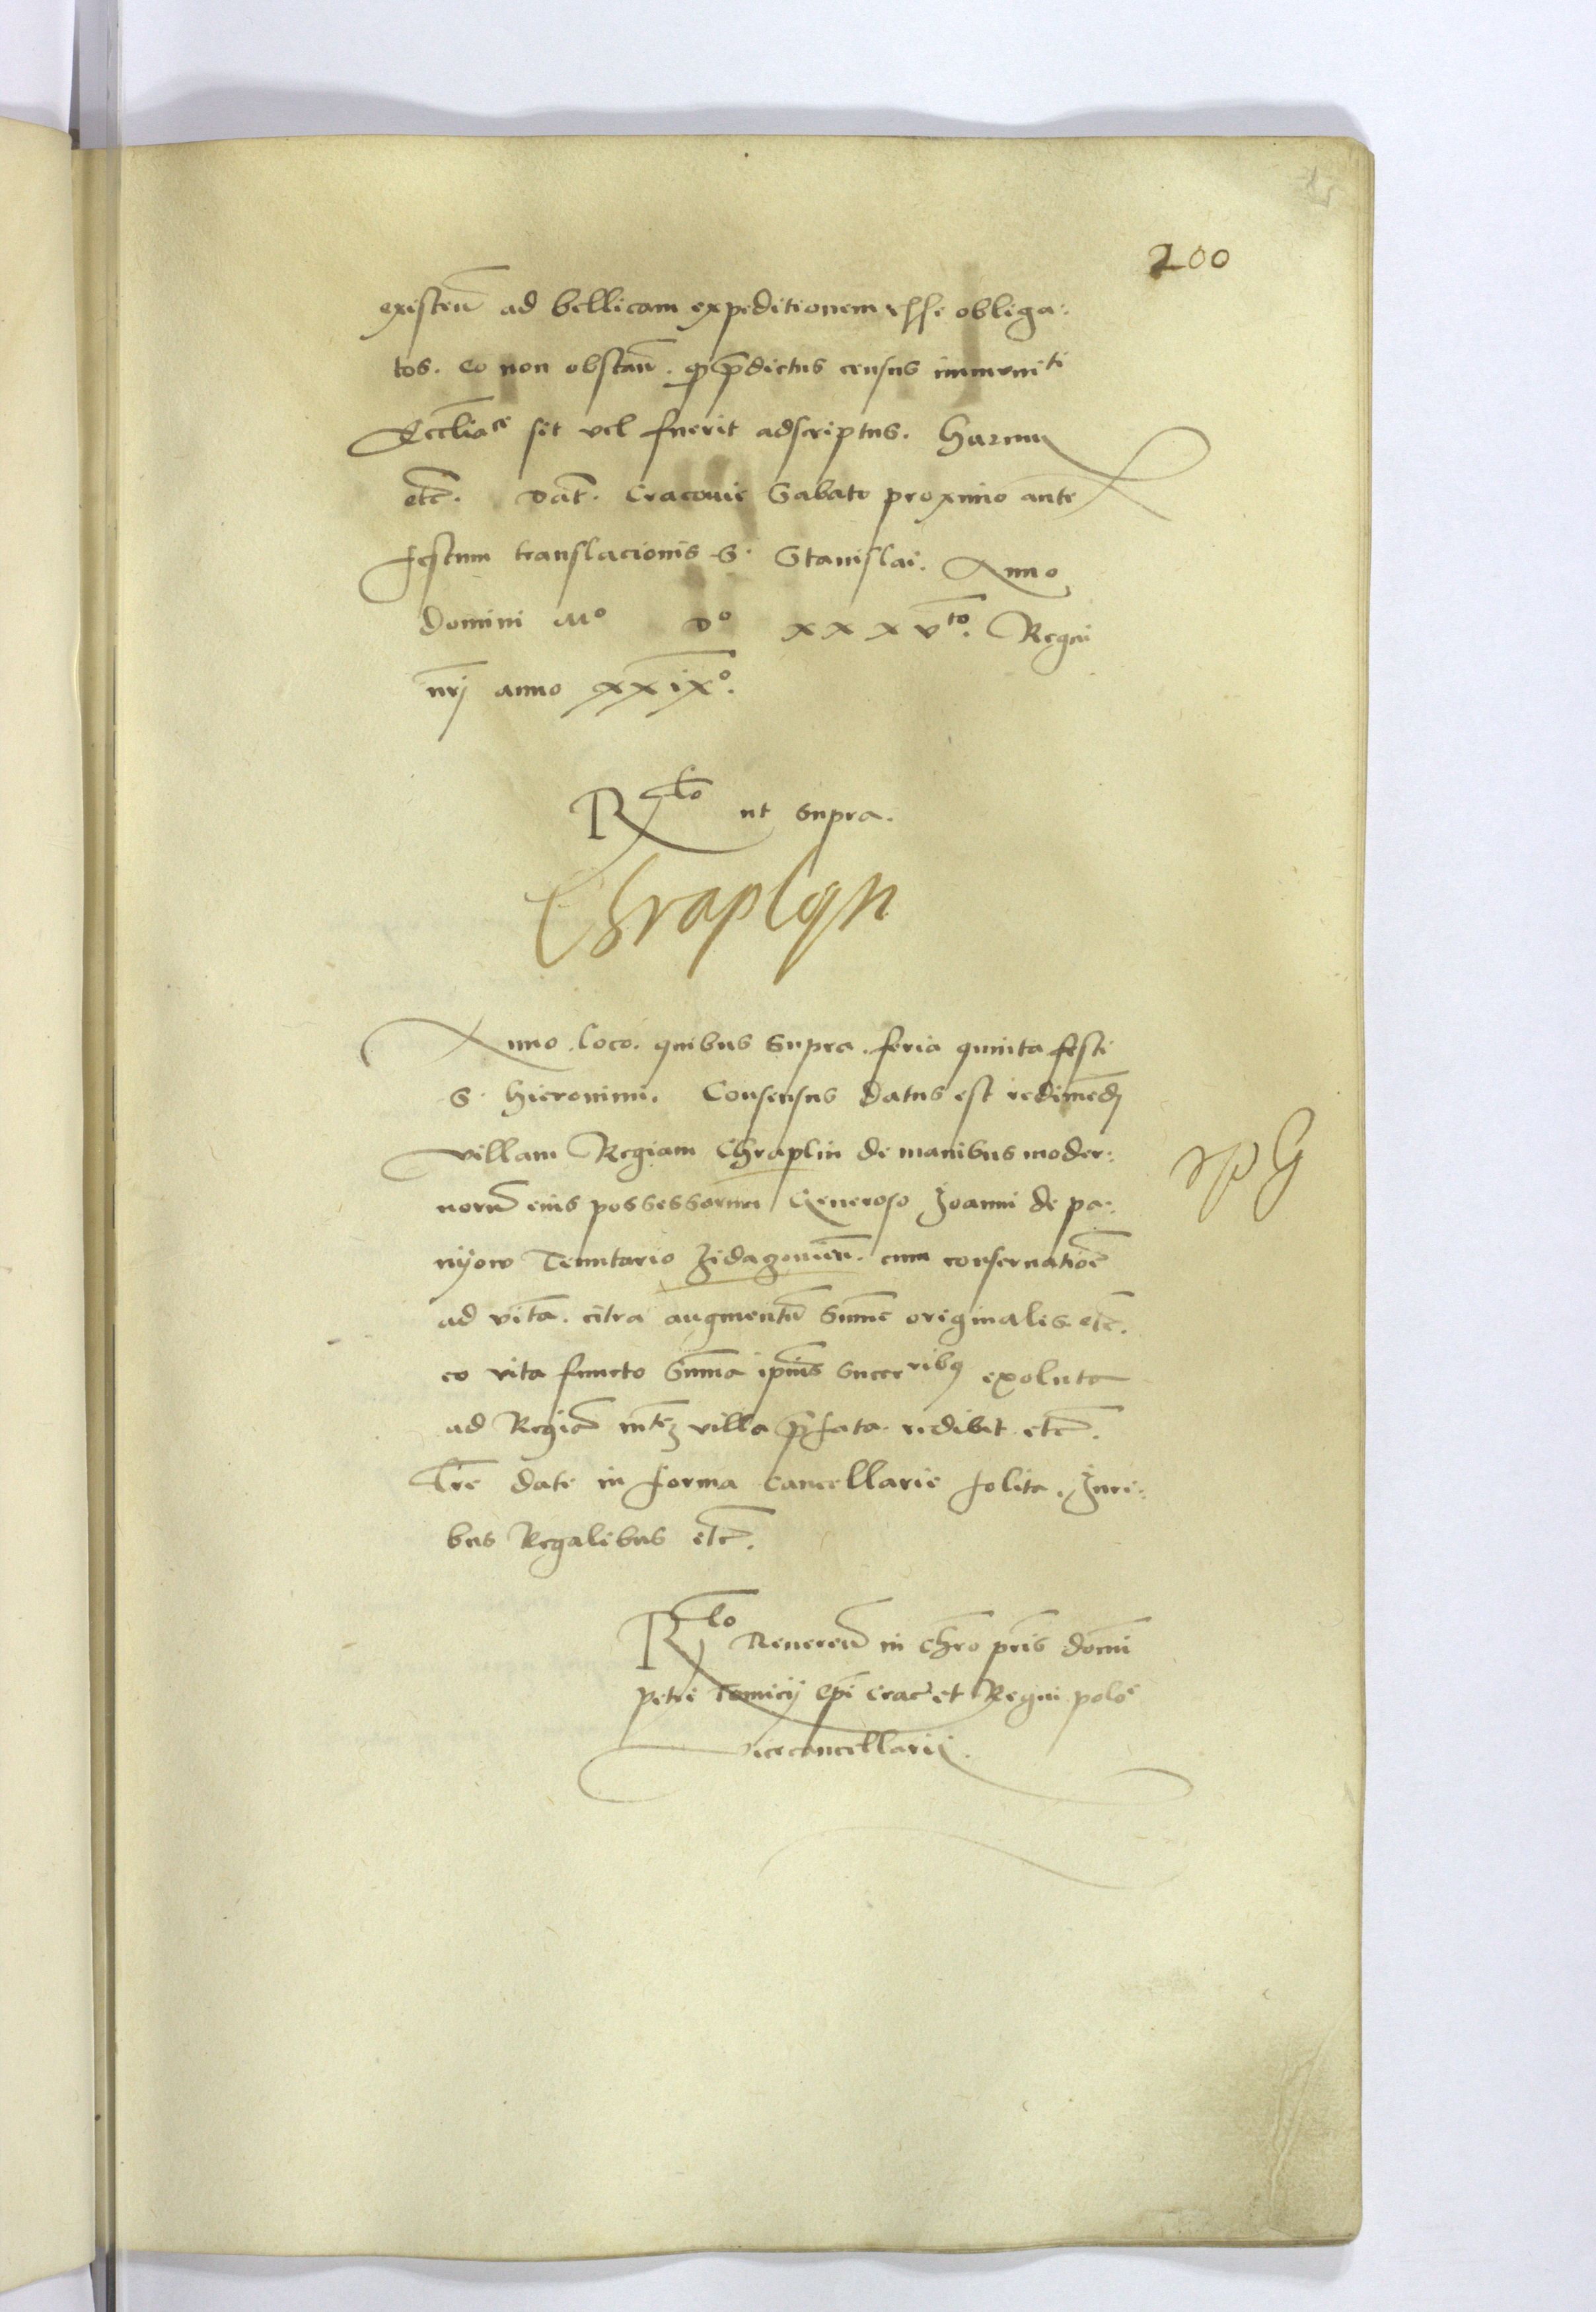 200
existen̄ ad bellicam expeditionem esse obliga:
tos. Eo non obstan̄. q p̄dictus census immunitti
Ecclia̅ce sit vel fuerit adscriptus. harum
etc̄. Dat̄. Cracovie Sabato proximo ante
festum translacionis S. Stanislai. Anno
domini Mo Do XXXVto. Regni
nr̄j anno XXIXo.
Rlo ut supra.
Chraplyn
Anno. loco. quibus supra. feria quinta festi
S. Hieronimi. Consensus datus est redimēdj
villam Regiam Chraplin de manibus moder:
norū eius possessorum Generoso Joanni de pa:
nyow Tenutario Zidazouien̄. cum conseruatiōe
ad vitā. citra augmentū summe originalis etc̄.
eo vita functo Summa ip̄ius succeribꝫ exoluta
ad Regiā mt̄ē villa p̄fata redibit etc̄.
Lr̄e date in forma Cancellarie solita. Juri:
bus Regalibus etc̄.
Rlo Reueren̄ in chr̄o pr̄is domī
Petri Tomicij Ep̄i Crac̄ et Regni polōe
vicecancellarij.